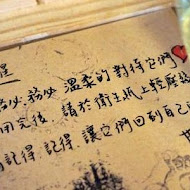 醒
務必，務必，溫柔的對待它們
用完後，請於衛生紙上輕壓
記得，記得，讓它們回到自己